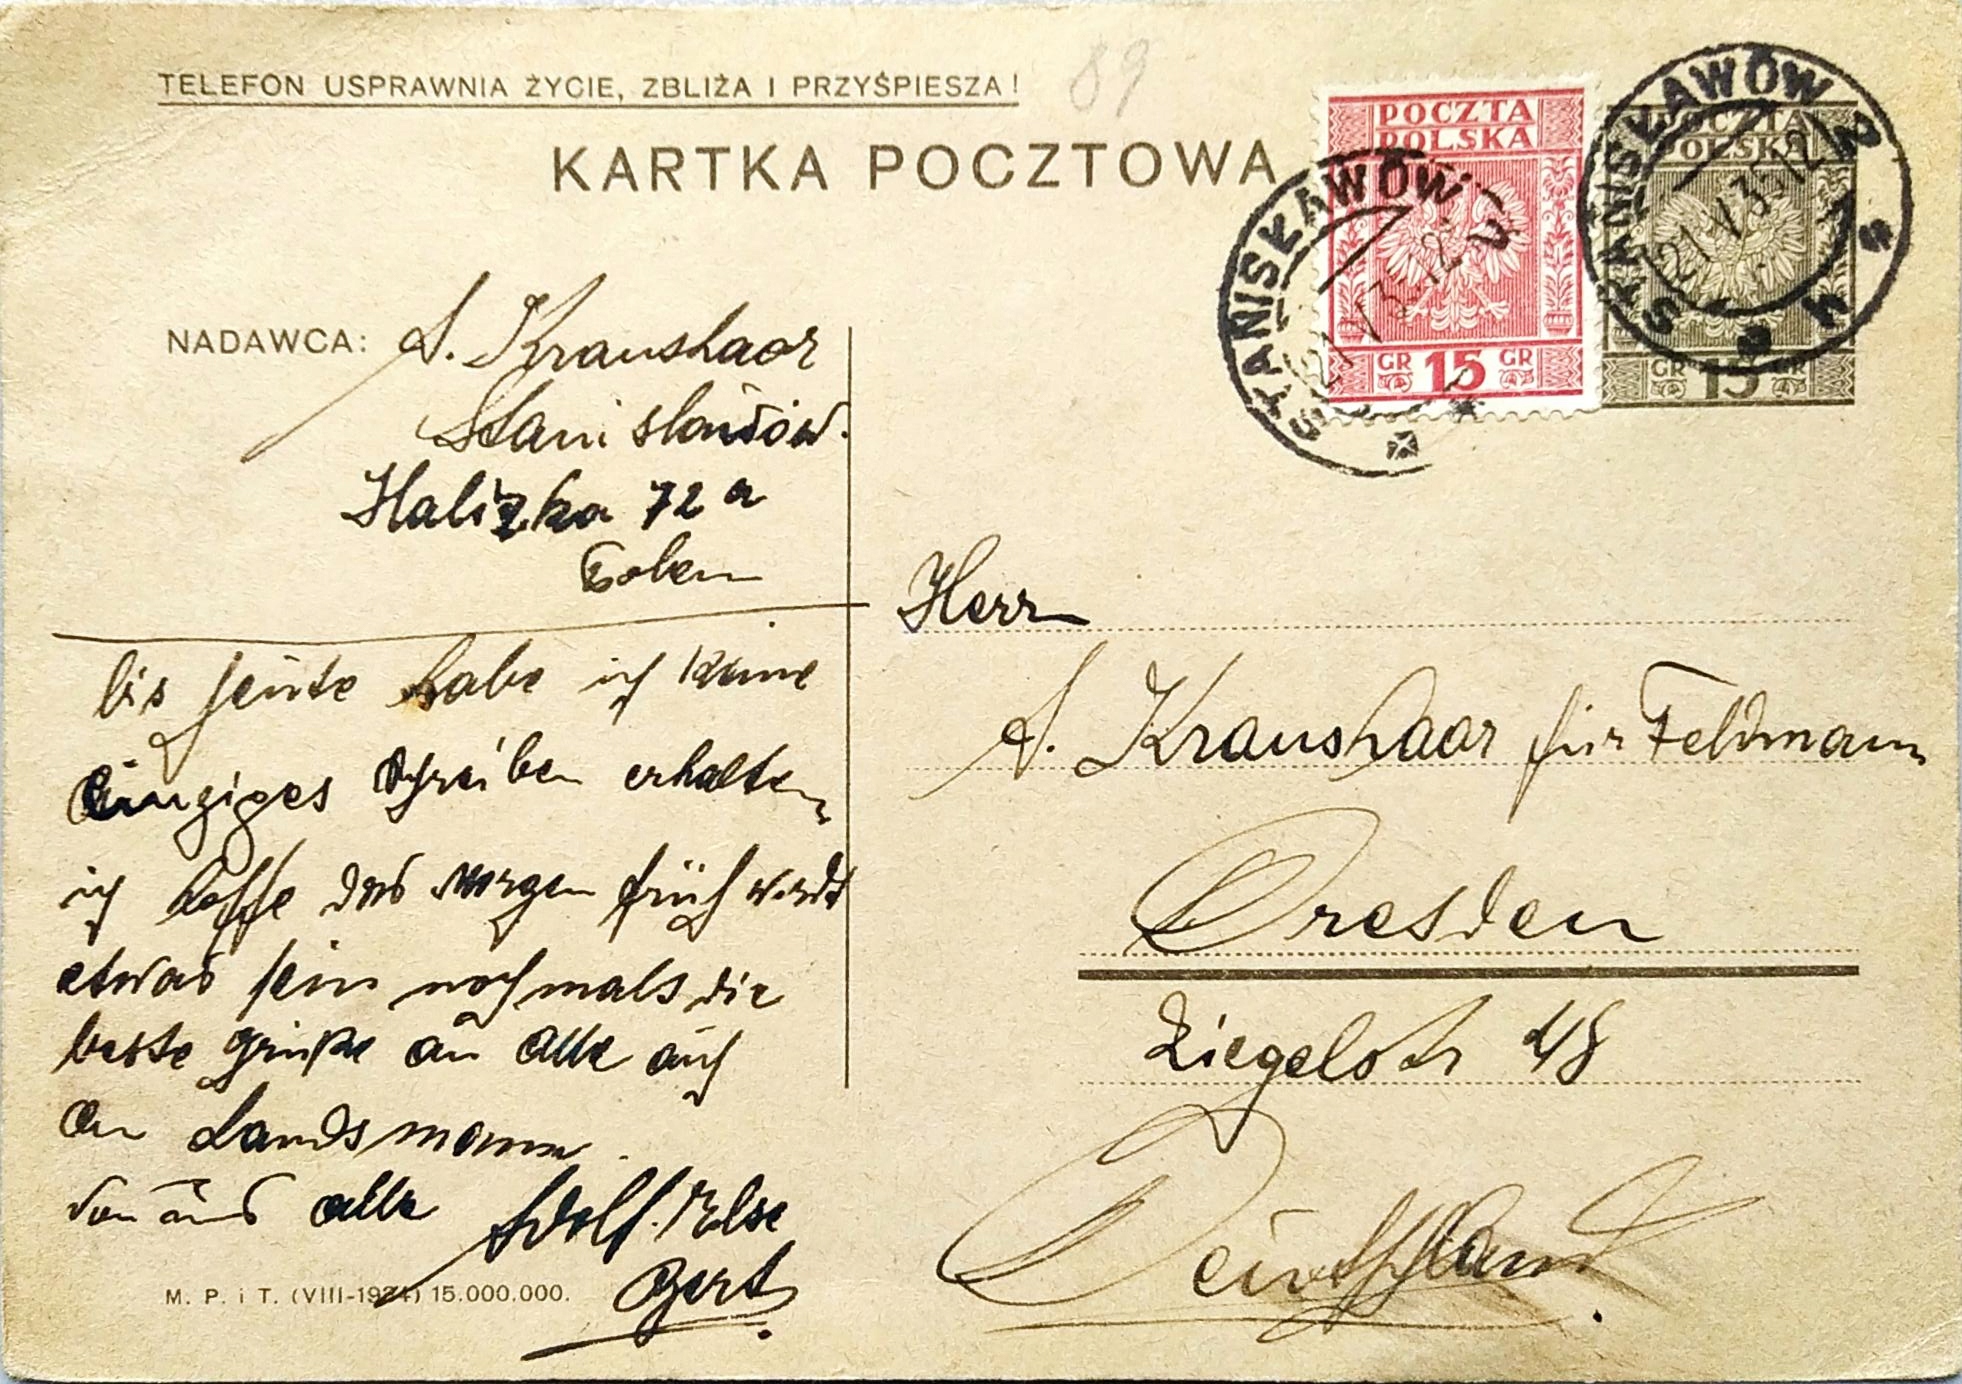 TELEFON USPRAWNIA ŻYCIE, ZBLIŻA I PRZYŚPIESZA!
89
KARTKA POCZTOWA
POCZTA
POLSKA
GR 15 GR
STANISŁAWÓW
21 V 35 12
POCZTA
POLSKA
GR 15 GR
STANISŁAWÓW 2
21 V 35 12
NADAWCA: A. Kraushaar
Stanislawów.
Halizka 72 a
Polen
bis heute habe ich keine
Einziges Schreiben erhalten
ich hoffe das morgen früh wirdt
etwas sein nochmals die
beste grüße an alle auch
an Landsmann
von uns alle Adolf. Else
Gert
M. P. i T. (VIII-1934) 15.000.000.
Herr
A. Kraushaar für Feldmann
Dresden
Ziegelstr 48
Deutschland